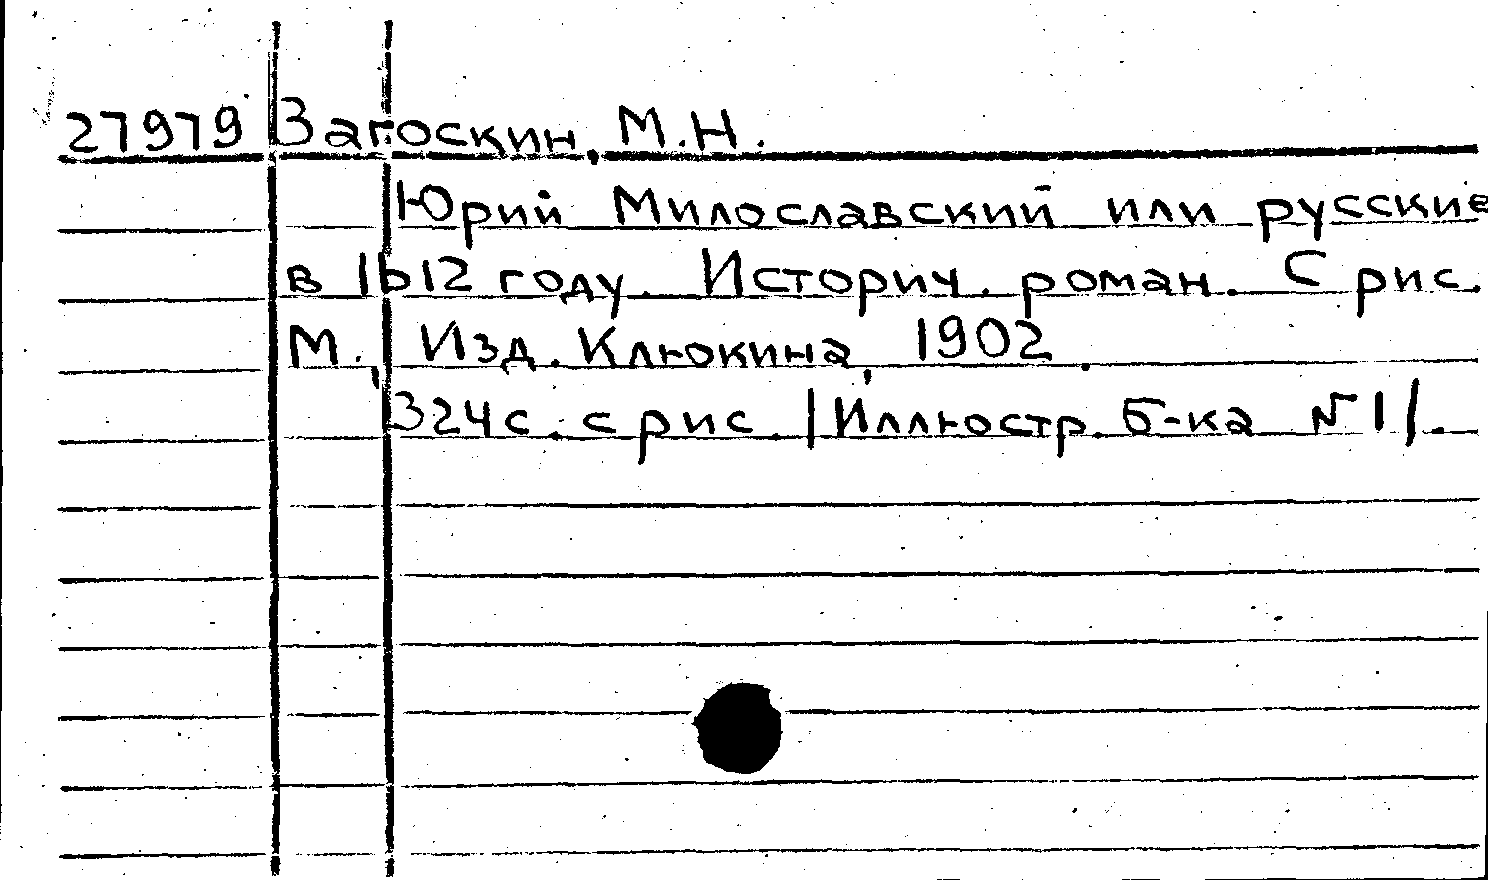 27979 Загоскин, М.Н.
Юрий Милославский или русские
в 1612 году. Историч. роман. С рис.
М., Изд. Клюкина, 1902.
324 с. с рис. /Иллюстр. б-ка №1/.